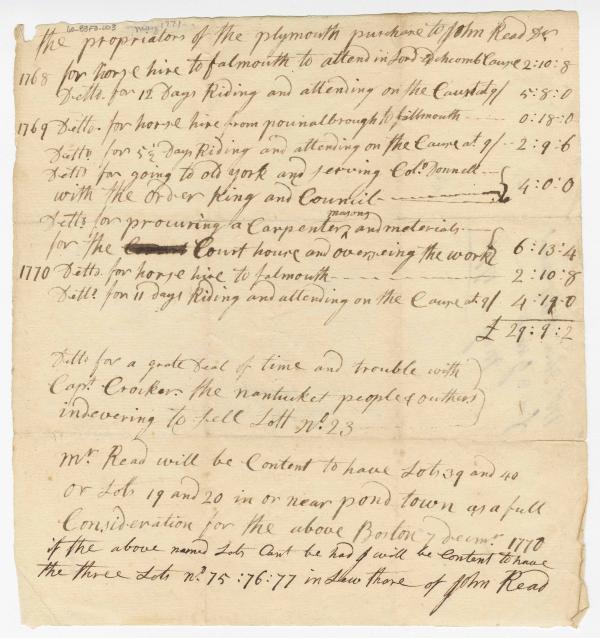 10-83F0-103 May 1771
the propriators of the plymouth purchase to John Read Dr
1768 for horse hire to falmouth to attend in Lord Cause 2:10:8
Ditto for 12 Days Riding and attending on the Caus at 9/ 5:8:0
1769 Ditto for horse hire from pounalbrough to fallmouth 0:18:0
Ditto for 5½ Days Riding and attending on the Cause at 9/ 2:9:6
Ditto for going to old york and serving Colo Donnell
with the order King and Council 4:0:0
Ditto for procuring a Carpenter masons and materials
for the Court house and overseing the work 6:13:4
1770 Ditto for horse hire to falmouth 2:10:8
Ditto for 11 days Riding and attending on the Cause at 9/ 4:19:0
£ 29:9:2
Ditto for a grate Deal of time and trouble with
Capt Crocker the nantucket people & outhers
indevering to sell Lott No 23
Mr Read will be Content to have Lots 39 and 40
or Lots 19 and 20 in or near pond town as a full
Consideration for the above Boston 7 Decmr 1770
if the above named Lots Cant be had I will be Content to have
the three Lots no 75:76:77 in of John Read